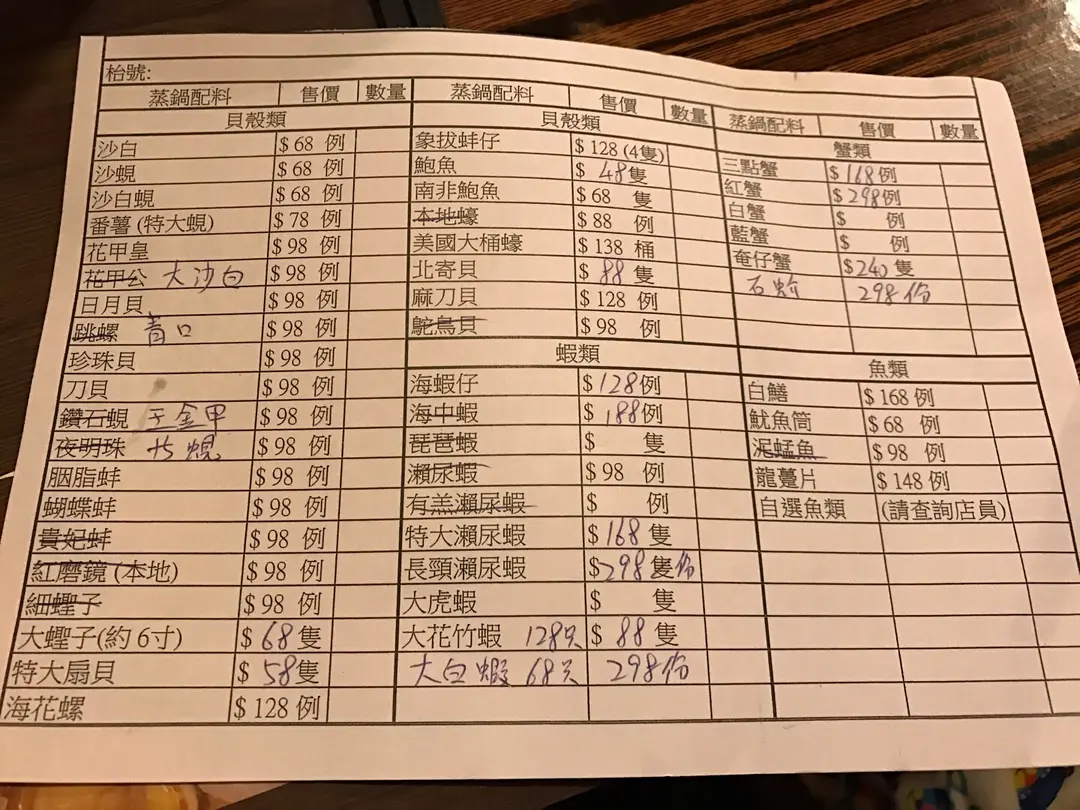 枱號:
蒸鍋配料 售價 數量
貝殼類
沙白 $68 例
沙蜆 $68 例
沙白蜆 $68 例
番薯(特大蜆) $78 例
花甲皇 $98 例
花甲公 大沙白 $98 例
日月貝 $98 例
跳螺 青口 $98 例
珍珠貝 $98 例
刀貝 $98 例
鑽石蜆 金甲 $98 例
夜明珠 蜆 $98 例
胭脂蚌 $98 例
蝴蝶蚌 $98 例
貴妃蚌 $98 例
紅磨鏡(本地) $98 例
細蟶子 $98 例
大蟶子(約6寸) $68隻
特大扇貝 $58隻
海花螺 $128 例
蒸鍋配料 售價 數量
貝殼類
象拔蚌仔 $128(4隻)
鮑魚 $48隻
南非鮑魚 $68 隻
本地蠔 $88 例
美國大桶蠔 $138 桶
北寄貝 $88隻
麻刀貝 $128 例
鴕鳥貝 $98 例
蝦類
海蝦仔 $128例
海中蝦 $188例
琵琶蝦 $ 隻
瀨尿蝦 $98 例
有羔瀨尿蝦 $ 例
特大瀨尿蝦 $168隻
長頸瀨尿蝦 $298隻份
大虎蝦 $ 隻
大花竹蝦 128只 $88隻
大白蝦 68只 298份
蒸鍋配料 售價 數量
蟹類
三點蟹 $168例
紅蟹 $298例
白蟹 $ 例
藍蟹 $ 例
奄仔蟹 $240隻
石蛤 298份
魚類
白鱔 $168 例
魷魚筒 $68 例
泥鯭魚 $98 例
龍躉片 $148 例
自選魚類 (請查詢店員)